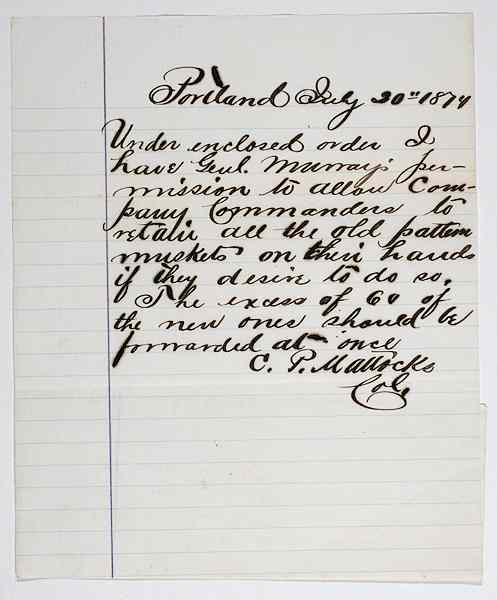 Portland July 30" 1874
Under enclosed order I
have Genl. Murray's per-
mission to allow Com-
pany Commanders to
retain all the old pattern
muskets on their hands
if they desire to do so.
The excess of 60 of
the new ones should be
forwarded at once
C. P. Mattocks
Col.